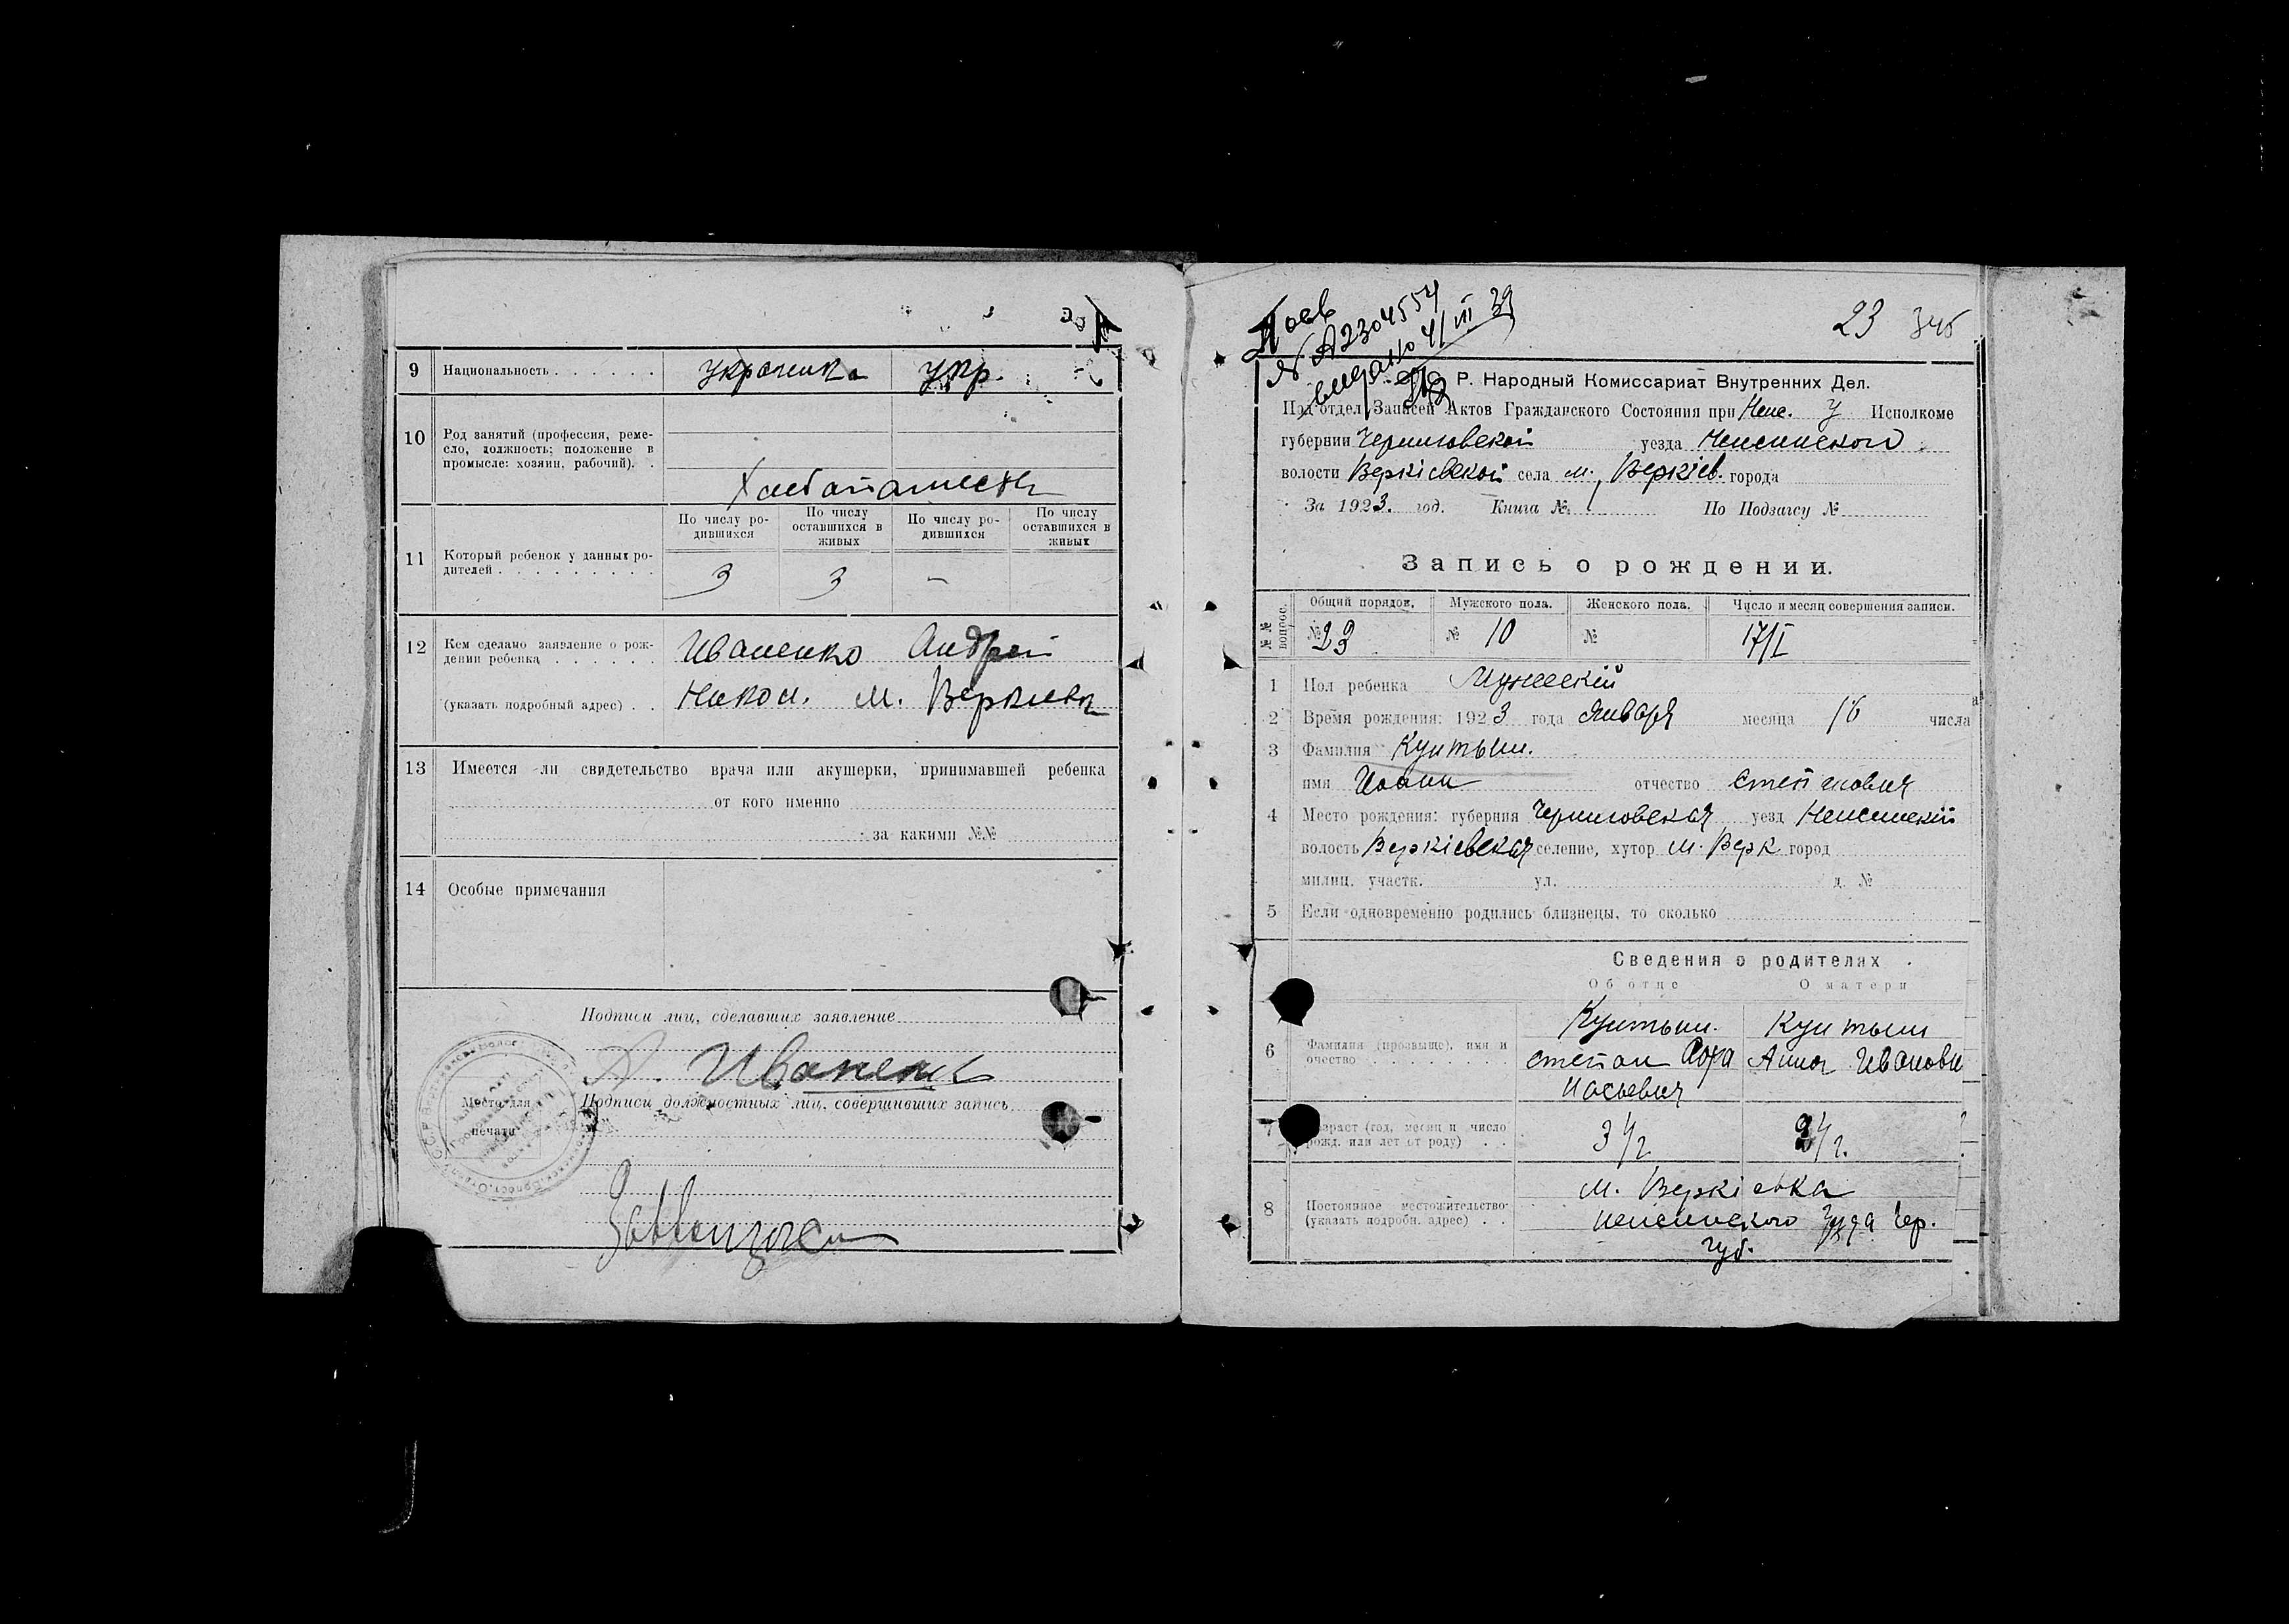 9 Национальность . . . . . . украинка укр.
10 Род занятий (профессия, реме-
сло, должность; положение в
промысле: хозяин, рабочий). .
Хлебопашество
11 Который ребенок у данных ро-
дителей . . . . . . . . .
По числу ро-
дившихся
По числу
оставшихся в
живых
По числу ро-
дившихся
По числу
оставшихся в
живых
3 3 –
12 Кем сделано заявление о рож-
дении ребенка . . . . . .
Иваненко Андрей
(указать подробный адрес) . . Никол. м. Веркиевка
13 Имеется ли свидетельство врача или акушерки, принимавшей ребенка
от кого именно
за какими №№
14 Особые примечания
Подписи лиц, сделавших заявление
А. Иваненко
Подписи должностных лиц, совершивших запись
Место для
печати
№ А2304554
видано 4/III 39
23
С. Р. Народный Комиссариат Внутренних Дел.
Подотдел Записей Актов Гражданского Состояния при Неже. У Исполкоме
губернии Черниговской уезда Неженского
волости Веркіевской села м. Веркіев. города
За 1923. год. Книга № По Подзагсу №
Запись о рождении.
№№ вопрос.
Общий порядок. Мужского пола. Женского пола. Число и месяц совершения записи.
№ 23 № 10 № 17/I
1 Пол ребенка Мужескій
2 Время рождения: 1923 года Января месяца 16 числа
3 Фамилия Куптыш.
имя Иоанн отчество Степанович
4 Место рождения: губерния Черниговская уезд Неженскій
волость Веркіевская селение, хутор м. Верк город
милиц. участк. ул. д. №
5 Если одновременно родились близнецы, то сколько
Сведения о родителях
Об отце О матери
6 Фамилия (прозвище), имя и
очество . . . . . . . . .
Куптыш. Куптыш
Степан Афа Анна Ивановн
насьевич
7 Возраст (год, месяц и число
рожд. или лет от роду) . . .
34/г.
8 Постоянное местожительство
(указать подробн. адрес) . .
м. Веркіевка
Неженского Уезда Чер.
губ.